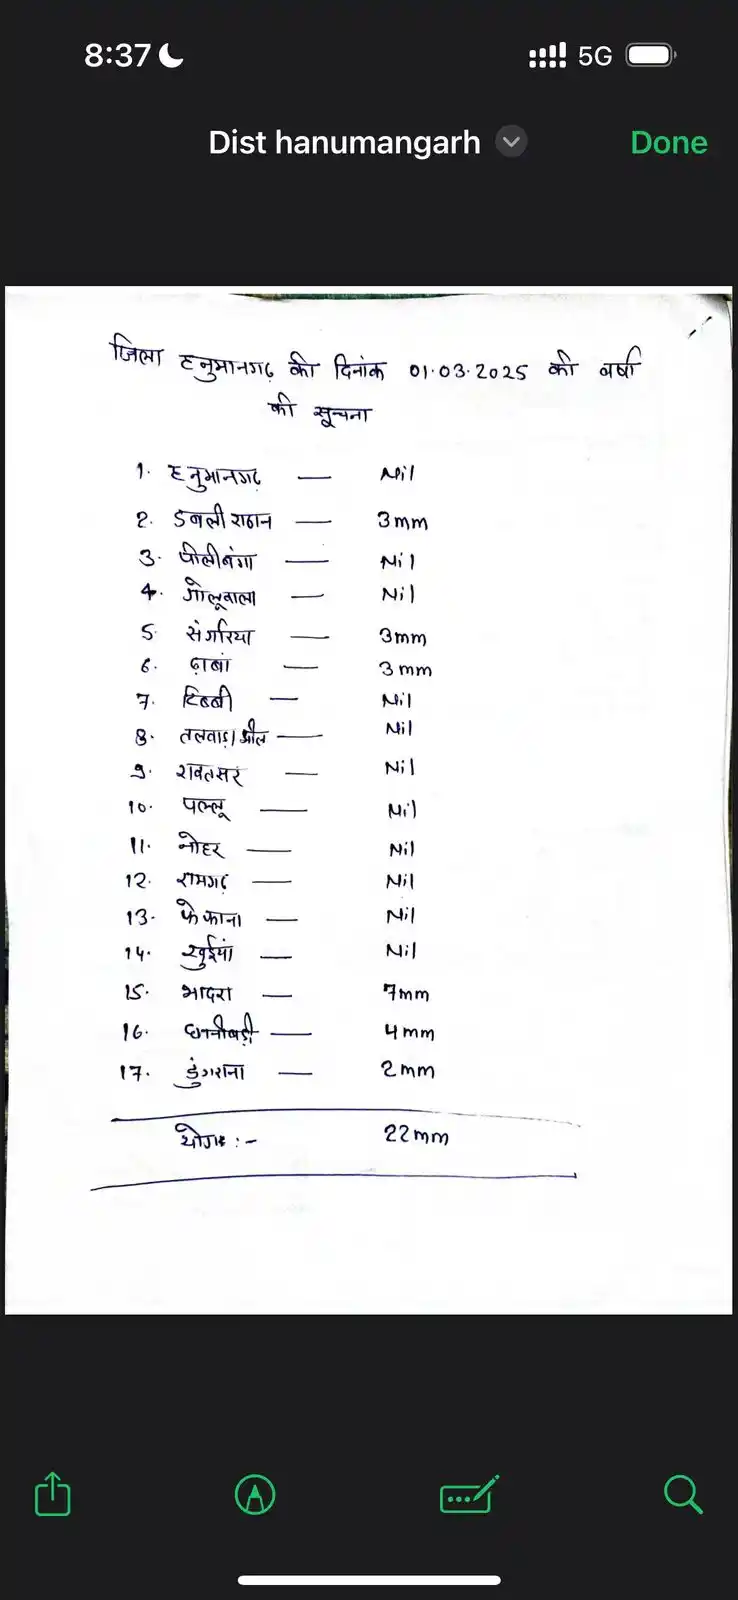 8:37
5G
Dist hanumangarh
Done
जिला हनुमानगढ़ की दिनांक 01.03.2025 की वर्षा
की सूचना
1. हनुमानगढ़ — Nil
2. डबलीराठान — 3mm
3. पीलीबंगा — Nil
4. गोलूवाला — Nil
5. संगरिया — 3mm
6. ढ़ाबां — 3mm
7. टिब्बी — Nil
8. तलवाड़ा झील — Nil
9. रावतसर — Nil
10. पल्लू — Nil
11. नोहर — Nil
12. रामगढ़ — Nil
13. फेफाना — Nil
14. खुईयां — Nil
15. भादरा — 7mm
16. छानीबड़ी — 4mm
17. डुंगराना — 2mm
योग :- 22mm